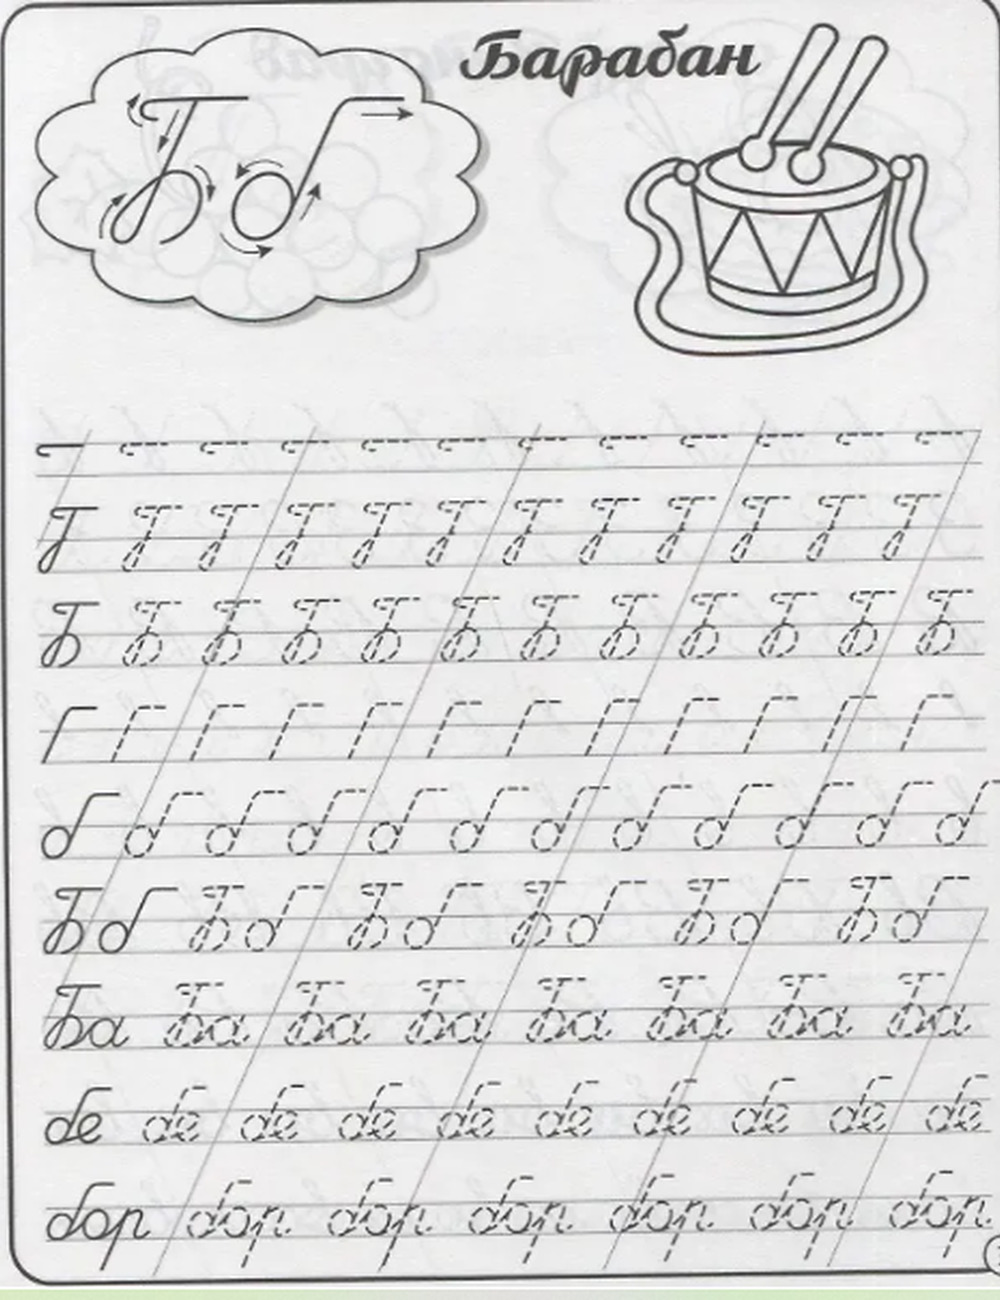 Б б
Барабан
Б Б Б Б Б Б Б Б Б Б Б Б
б б б б б б б б б б б б
Бб Бб Бб Бб Бб Бб
Ба Ба Ба Ба Ба Ба Ба Ба
бе бе бе бе бе бе бе бе бе бе
бор бор бор бор бор бор бор